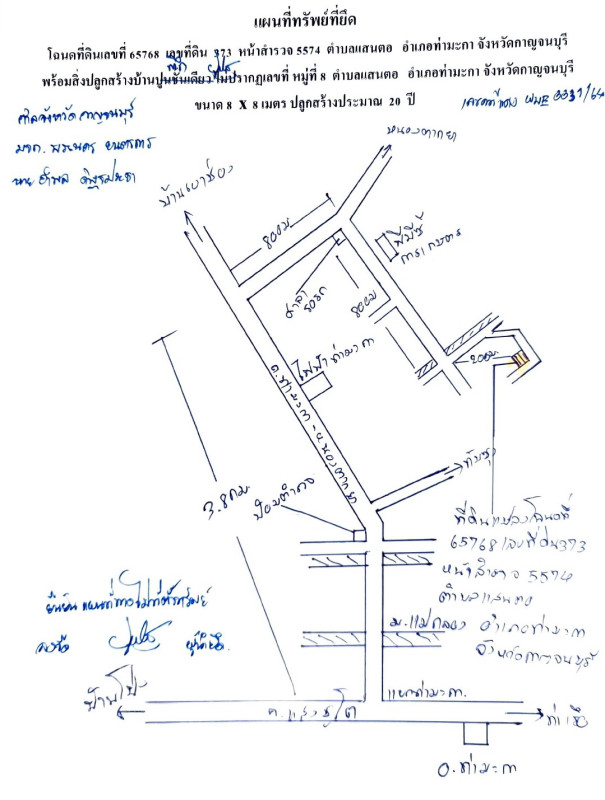 แผนที่ทรัพย์ที่ยึด
โฉนดที่ดินเลขที่ 65768 เลขที่ดิน 373 หน้าสำรวจ 5574 ตำบลแสนตอ อำเภอท่ามะกา จังหวัดกาญจนบุรี
พร้อมสิ่งปลูกสร้างบ้านปูนชั้นเดียว ไม่ปรากฏเลขที่ หมู่ที่ 8 ตำบลแสนตอ อำเภอท่ามะกา จังหวัดกาญจนบุรี
ขนาด 8 X 8 เมตร ปลูกสร้างประมาณ 20 ปี
ศาลจังหวัดกาญจนบุรี
หนองตากยา
800ม.
พีบีซี
การเกษตร
ศาลา
รอรถ
800ม
200ม.
ไฟฟ้าท่ามะกา
ถ.ท่ามะกา - บ.หนองตากยา
3.8กม.
ป้อมตำรวจ
ที่ดินแปลงโฉนดที่
65768 เลขที่ดิน373
หน้าสำรวจ 5574
ตำบลแสนตอ
อำเภอท่ามะกา
จังหวัดกาญจนบุรี
ม.แม่กลอง
ลงชื่อ
ผู้นำยึด
บ้านโป่ง
แยกท่ามะกา
ถ.แสงชูโต
ท่าเรือ
อ.ท่ามะกา